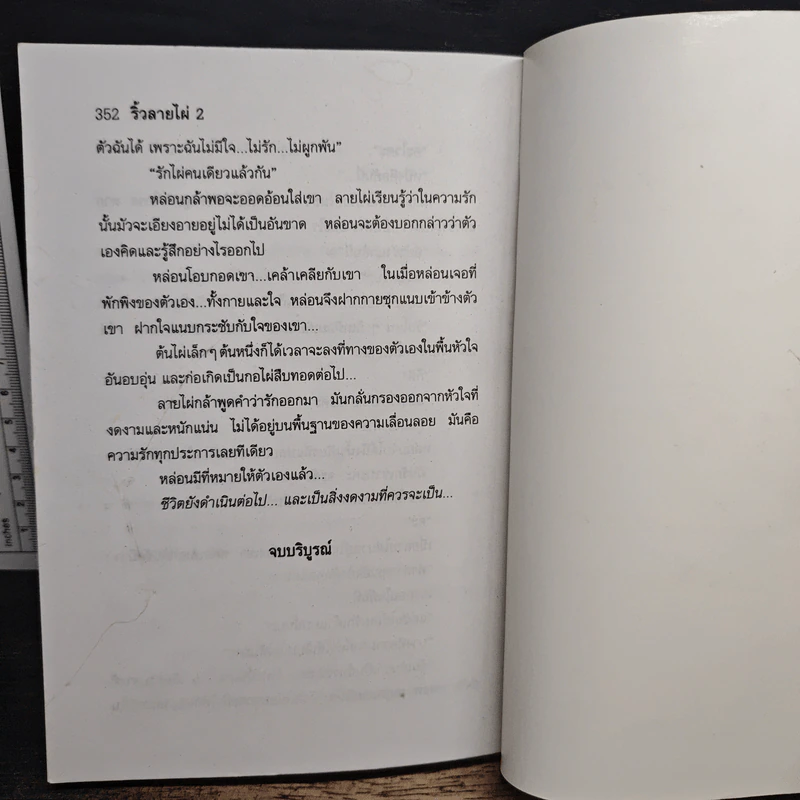 352 ริ้วลายไผ่ 2
ตัวฉันได้ เพราะฉันไม่มีใจ...ไม่รัก...ไม่ผูกพัน”
“รักไผ่คนเดียวแล้วกัน”
หล่อนกล้าพอจะออดอ้อนใส่เขา ลายไผ่เรียนรู้ว่าในความรัก
นั้นมัวจะเอียงอายอยู่ไม่ได้เป็นอันขาด หล่อนจะต้องบอกกล่าวว่าตัว
เองคิดและรู้สึกอย่างไรออกไป
หล่อนโอบกอดเขา...เคล้าเคลียกับเขา ในเมื่อหล่อนเจอที่
พักพิงของตัวเอง...ทั้งกายและใจ หล่อนจึงฝากกายซุกแนบเข้าข้างตัว
เขา ฝากใจแนบกระชับกับใจของเขา...
ต้นไผ่เล็กๆ ต้นหนึ่งก็ได้เวลาจะลงที่ทางของตัวเองในพื้นหัวใจ
อันอบอุ่น และก่อเกิดเป็นกอไผ่สืบทอดต่อไป...
ลายไผ่กล้าพูดคำว่ารักออกมา มันกลั่นกรองออกจากหัวใจที่
งดงามและหนักแน่น ไม่ได้อยู่บนพื้นฐานของความเลื่อนลอย มันคือ
ความรักทุกประการเลยทีเดียว
หล่อนมีที่หมายให้ตัวเองแล้ว...
ชีวิตยังดำเนินต่อไป... และเป็นสิ่งงดงามที่ควรจะเป็น...
จบบริบูรณ์
inches